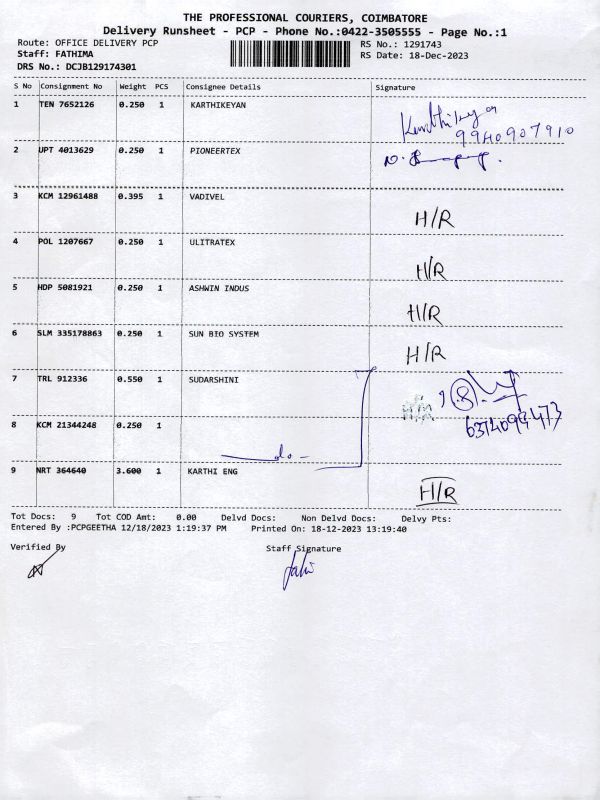 THE PROFESSIONAL COURIERS, COIMBATORE
Delivery Runsheet - PCP - Phone No.:0422-3505555 - Page No.:1
Route: OFFICE DELIVERY PCP RS No.: 1291743
Staff: FATHIMA RS Date: 18-Dec-2023
DRS No.: DCJB129174301
S No Consignment No Weight PCS Consignee Details Signature
1 TEN 7652126 0.250 1 KARTHIKEYAN Karthikeyan
9940907910
2 UPT 4013629 0.250 1 PIONEERTEX
3 KCM 12961488 0.395 1 VADIVEL H/R
4 POL 1207667 0.250 1 ULITRATEX H/R
5 HDP 5081921 0.250 1 ASHWIN INDUS H/R
6 SLM 335178863 0.250 1 SUN BIO SYSTEM H/R
7 TRL 912336 0.550 1 SUDARSHINI
8 KCM 21344248 0.250 1 do
9 NRT 364640 3.600 1 KARTHI ENG H/R
Tot Docs: 9 Tot COD Amt: 0.00 Delvd Docs: Non Delvd Docs: Delvy Pts:
Entered By :PCPGEETHA 12/18/2023 1:19:37 PM Printed On: 18-12-2023 13:19:40
Verified By Staff Signature